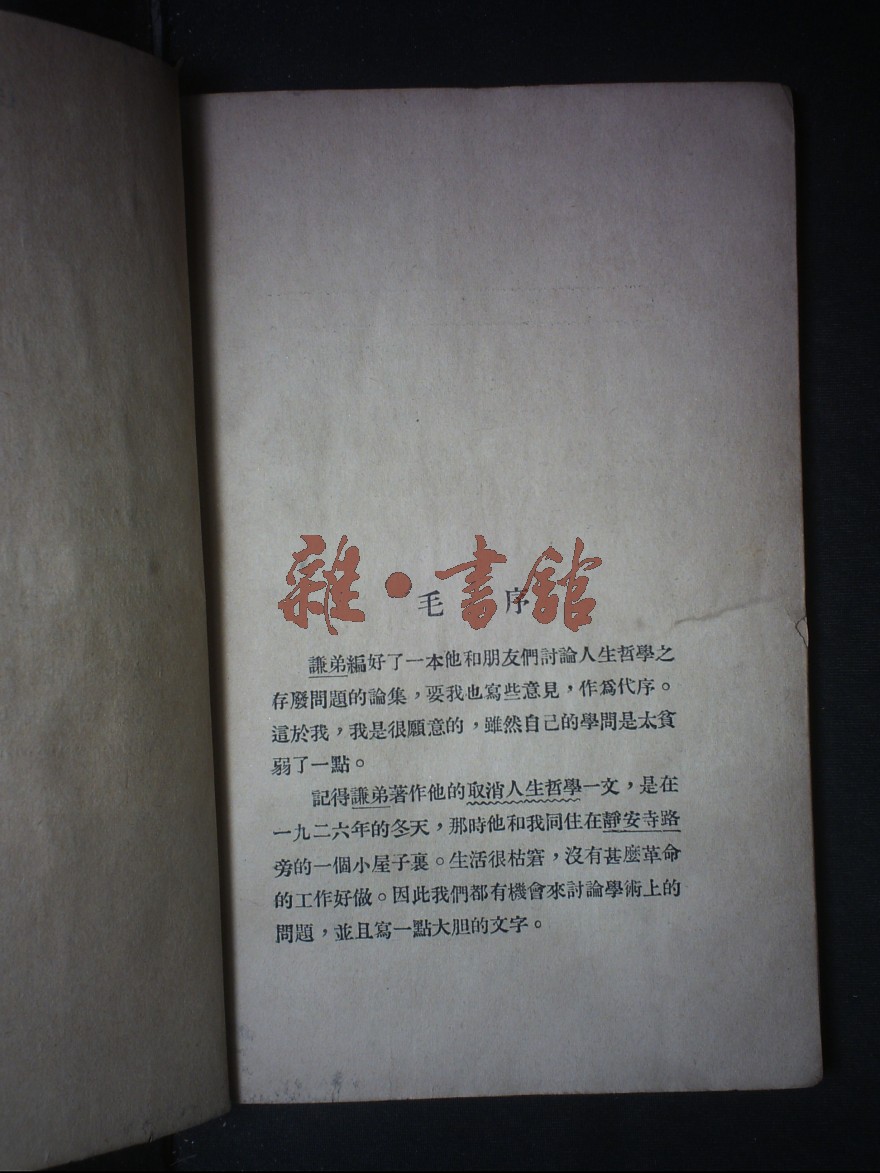 雜・書館
毛序
謙弟編好了一本他和朋友們討論人生哲學之
存廢問題的論集，要我也寫些意見，作爲代序。
這於我，我是很願意的，雖然自己的學問是太貧
弱了一點。
記得謙弟著作他的取消人生哲學一文，是在
一九二六年的冬天，那時他和我同住在靜安寺路
旁的一個小屋子裏。生活很枯窘，沒有甚麼革命
的工作好做。因此我們都有機會來討論學術上的
問題，並且寫一點大胆的文字。